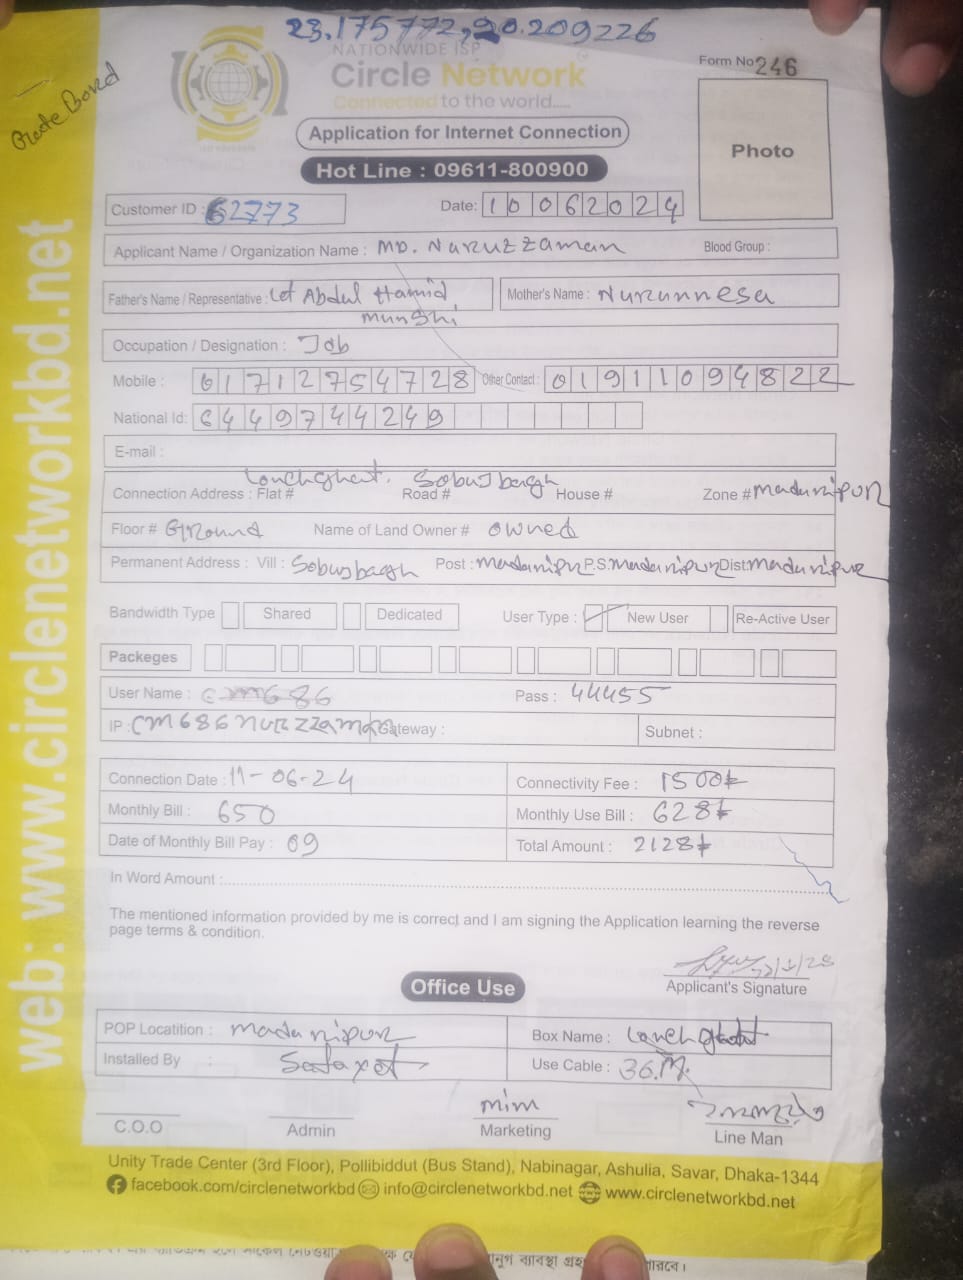 23.175772, 90.209226
NATIONWIDE ISP
Circle Network
Connected to the world.....
Form No 246
Application for Internet Connection
Photo
Hot Line : 09611-800900
Customer ID : 62773
Date: 10062024
Applicant Name / Organization Name : MD. Nuruzzaman Blood Group :
Father's Name / Representative : Let Abdul Hamid munshi
Mother's Name : Nurunnesa
Occupation / Designation : Job
Mobile : 01712754728 Other Contact : 01911094822
National Id: 6449744249
E-mail :
Connection Address : Flat # Lonchghat. Road # Sobujbargh House # Zone # madaripur
Floor # Ground Name of Land Owner # owned
Permanent Address : Vill : Sobujbargh Post : madaripur P.S. madaripur Dist: madaripur
Bandwidth Type Shared Dedicated User Type : New User Re-Active User
Packeges
User Name : cm686 Pass : 44455
IP : cm686nurzzaman Gateway : Subnet :
Connection Date : 11-06-24 Connectivity Fee : 1500
Monthly Bill : 650 Monthly Use Bill : 628
Date of Monthly Bill Pay : 09 Total Amount : 2128
In Word Amount :
The mentioned information provided by me is correct and I am signing the Application learning the reverse
page terms & condition.
Applicant's Signature
Office Use
POP Locatition : madaripur Box Name : Lonchghat
Installed By : Use Cable : 36.M.
mim
C.O.O Admin Marketing Line Man
Unity Trade Center (3rd Floor), Pollibiddut (Bus Stand), Nabinagar, Ashulia, Savar, Dhaka-1344
facebook.com/circlenetworkbd info@circlenetworkbd.net www.circlenetworkbd.net
web: www.circlenetworkbd.net